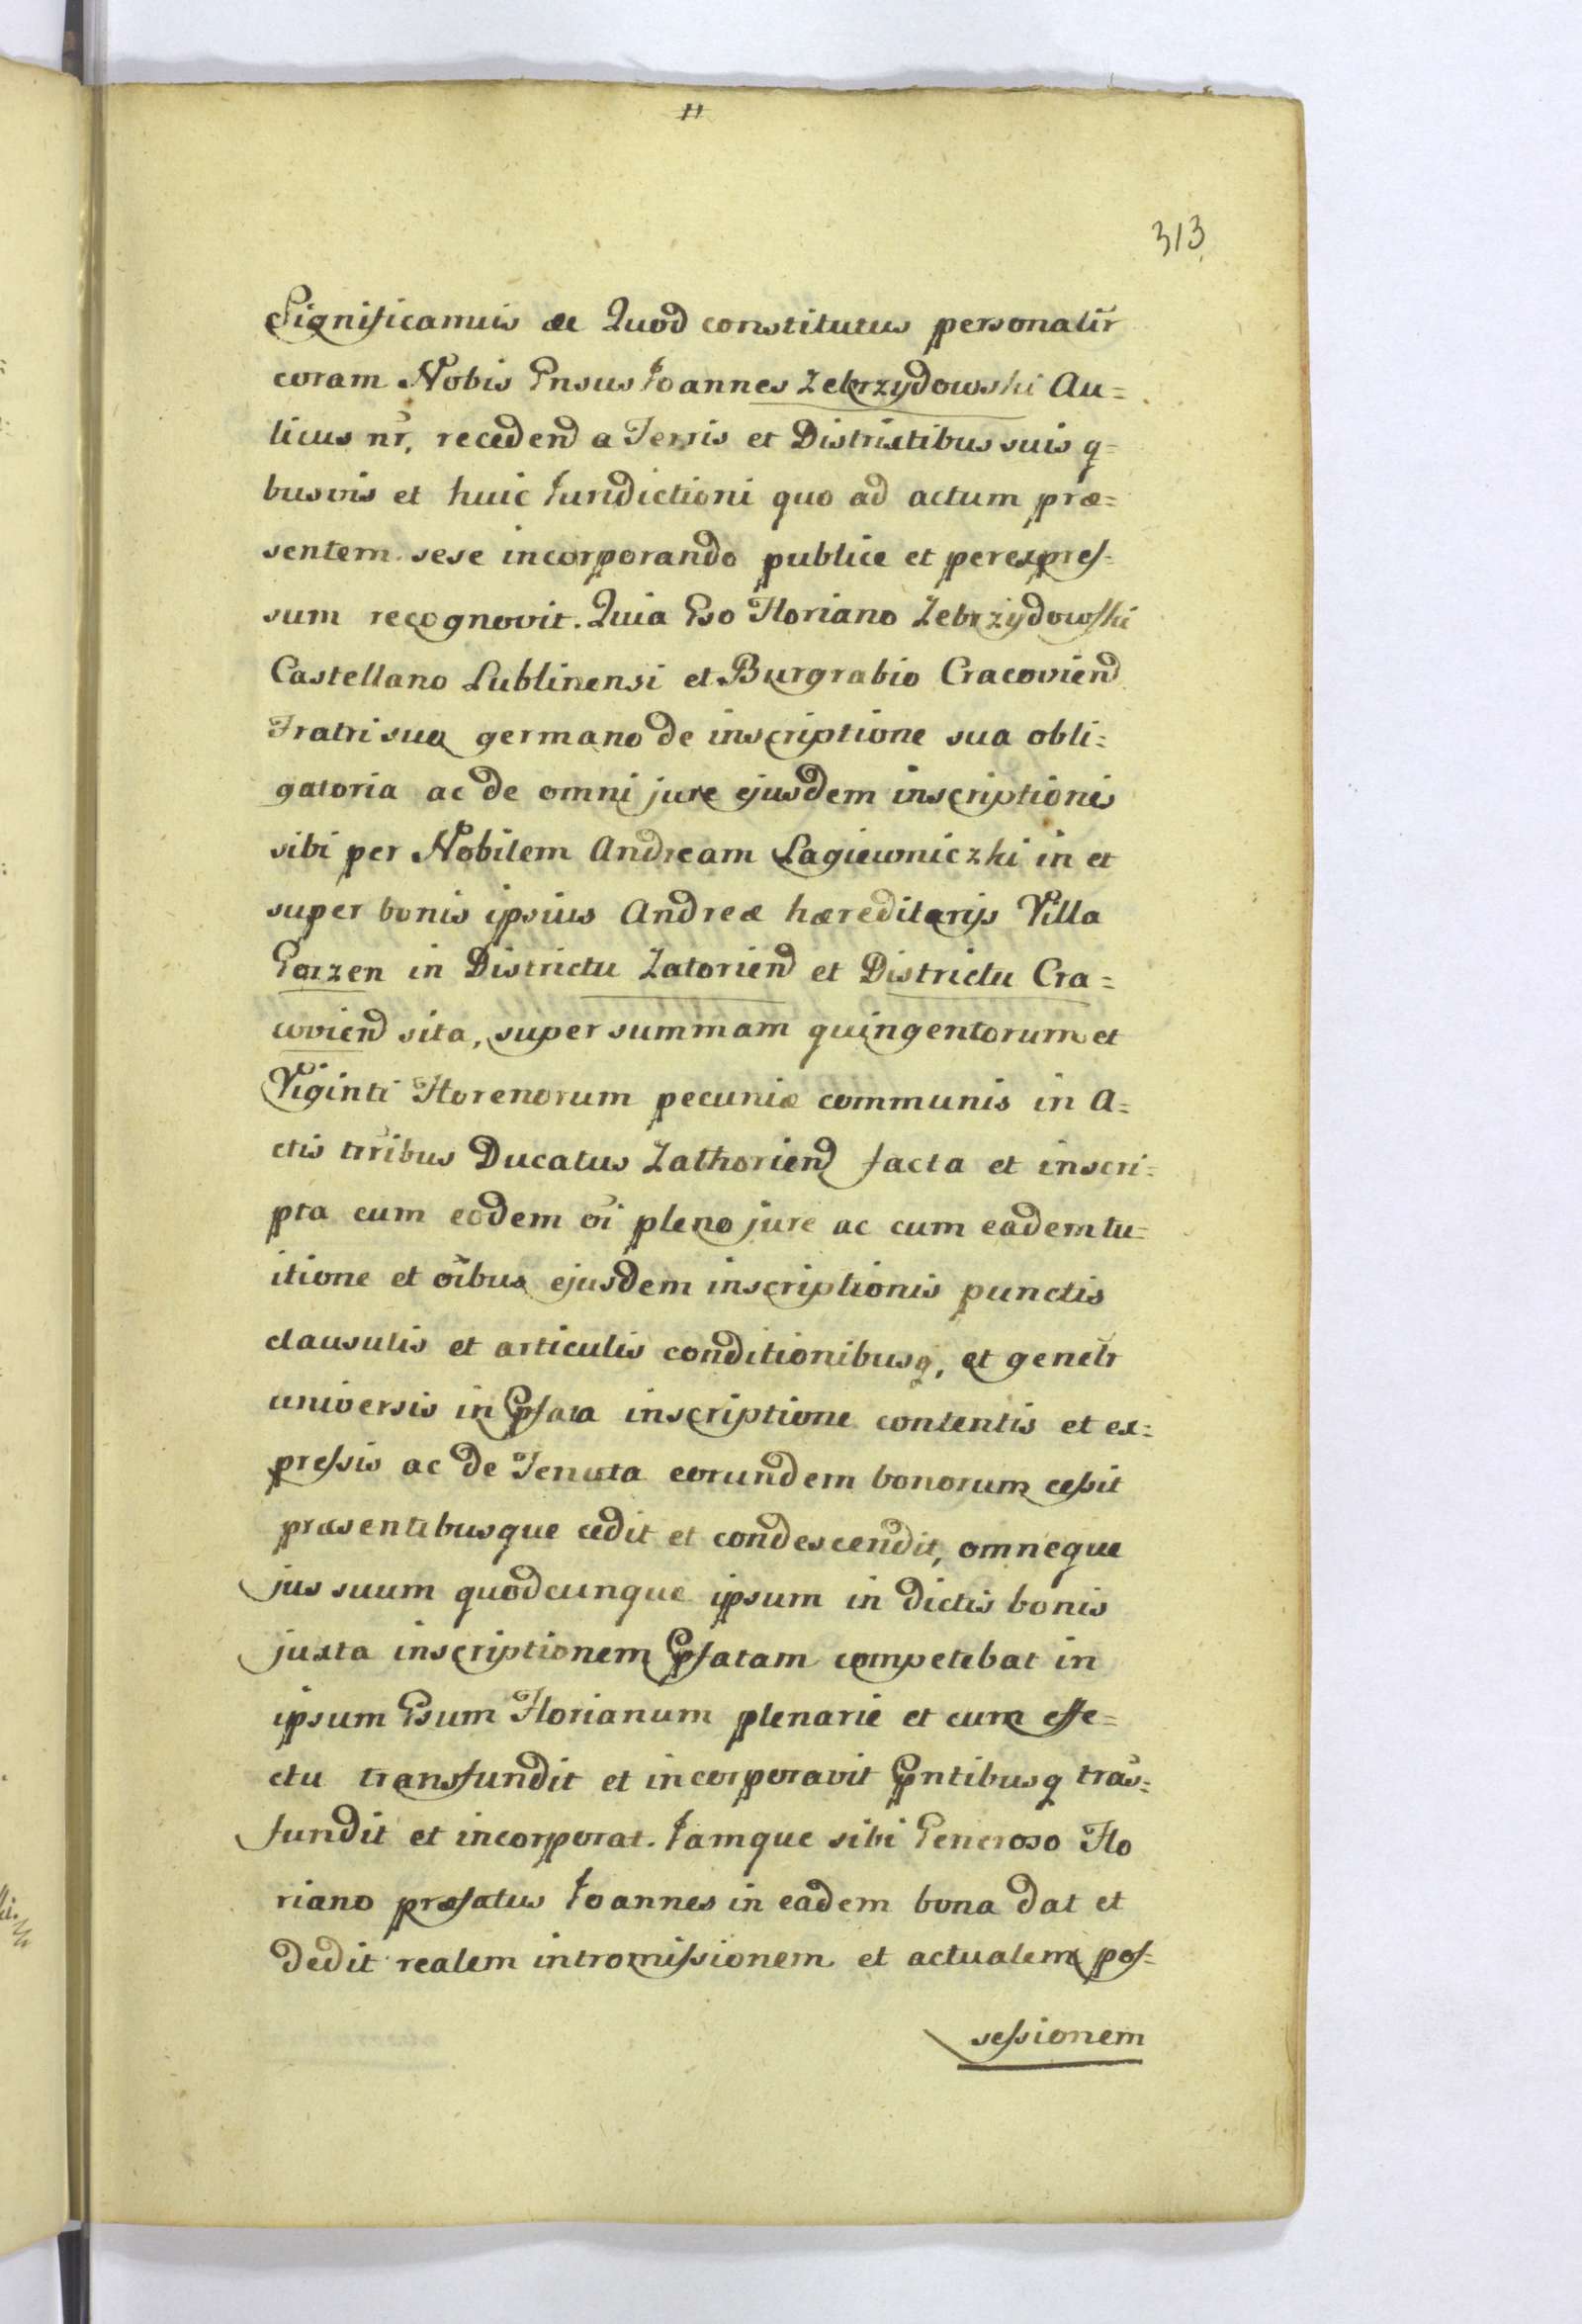 #
313
Significamus &c Quod constitutus personalir̃
coram Nobis Gnsus Joannes Zebrzydowski Au=
licus nr̃, recedend a Terris et Districtibus suis q=
busvis et huic Jurisdictioni quo ad actum præ=
sentem sese incorporando publice et per expres=
sum recognovit. Quia Gso Floriano Zebrzydowski
Castellano Lublinensi et Burgrabio Cracoviend
Fratri suo germano de inscriptione sua obli=
gatoria ac de omni jure ejusdem inscriptionis
sibi per Nobilem Andream Lagiewniczki in et
super bonis ipsius Andreæ hæreditarijs Villa
Gorzen in Districtu Zatoriend et Districtu Cra=
coviend sita, super summam quingentorum et
Viginti Florenorum pecuniæ communis in A=
ctis trr̃ibus Ducatus Zathoriend facta et inscri=
pta cum eodem oĩ pleno jure ac cum eadem tu=
itione et oĩbus ejusdem inscriptionis punctis
clausulis et articulis conditionibusq, et genelr̃
universis in Pfata inscriptione contentis et ex=
pressis ac de Tenuta eorundem bonorum cessit
præsentibusque cedit et condescendit, omneque
jus suum quodcunque ipsum in dictis bonis
juxta inscriptionem Pfatam competebat in
ipsum Gsum Florianum plenarie et cum effe=
ctu transfundit et incorporavit Pntibusq trãs=
fundit et incorporat. Jamque sibi Generoso Flo
riano præfatus Joannes in eadem bona dat et
dedit realem intromissionem et actualem pos=
sessionem